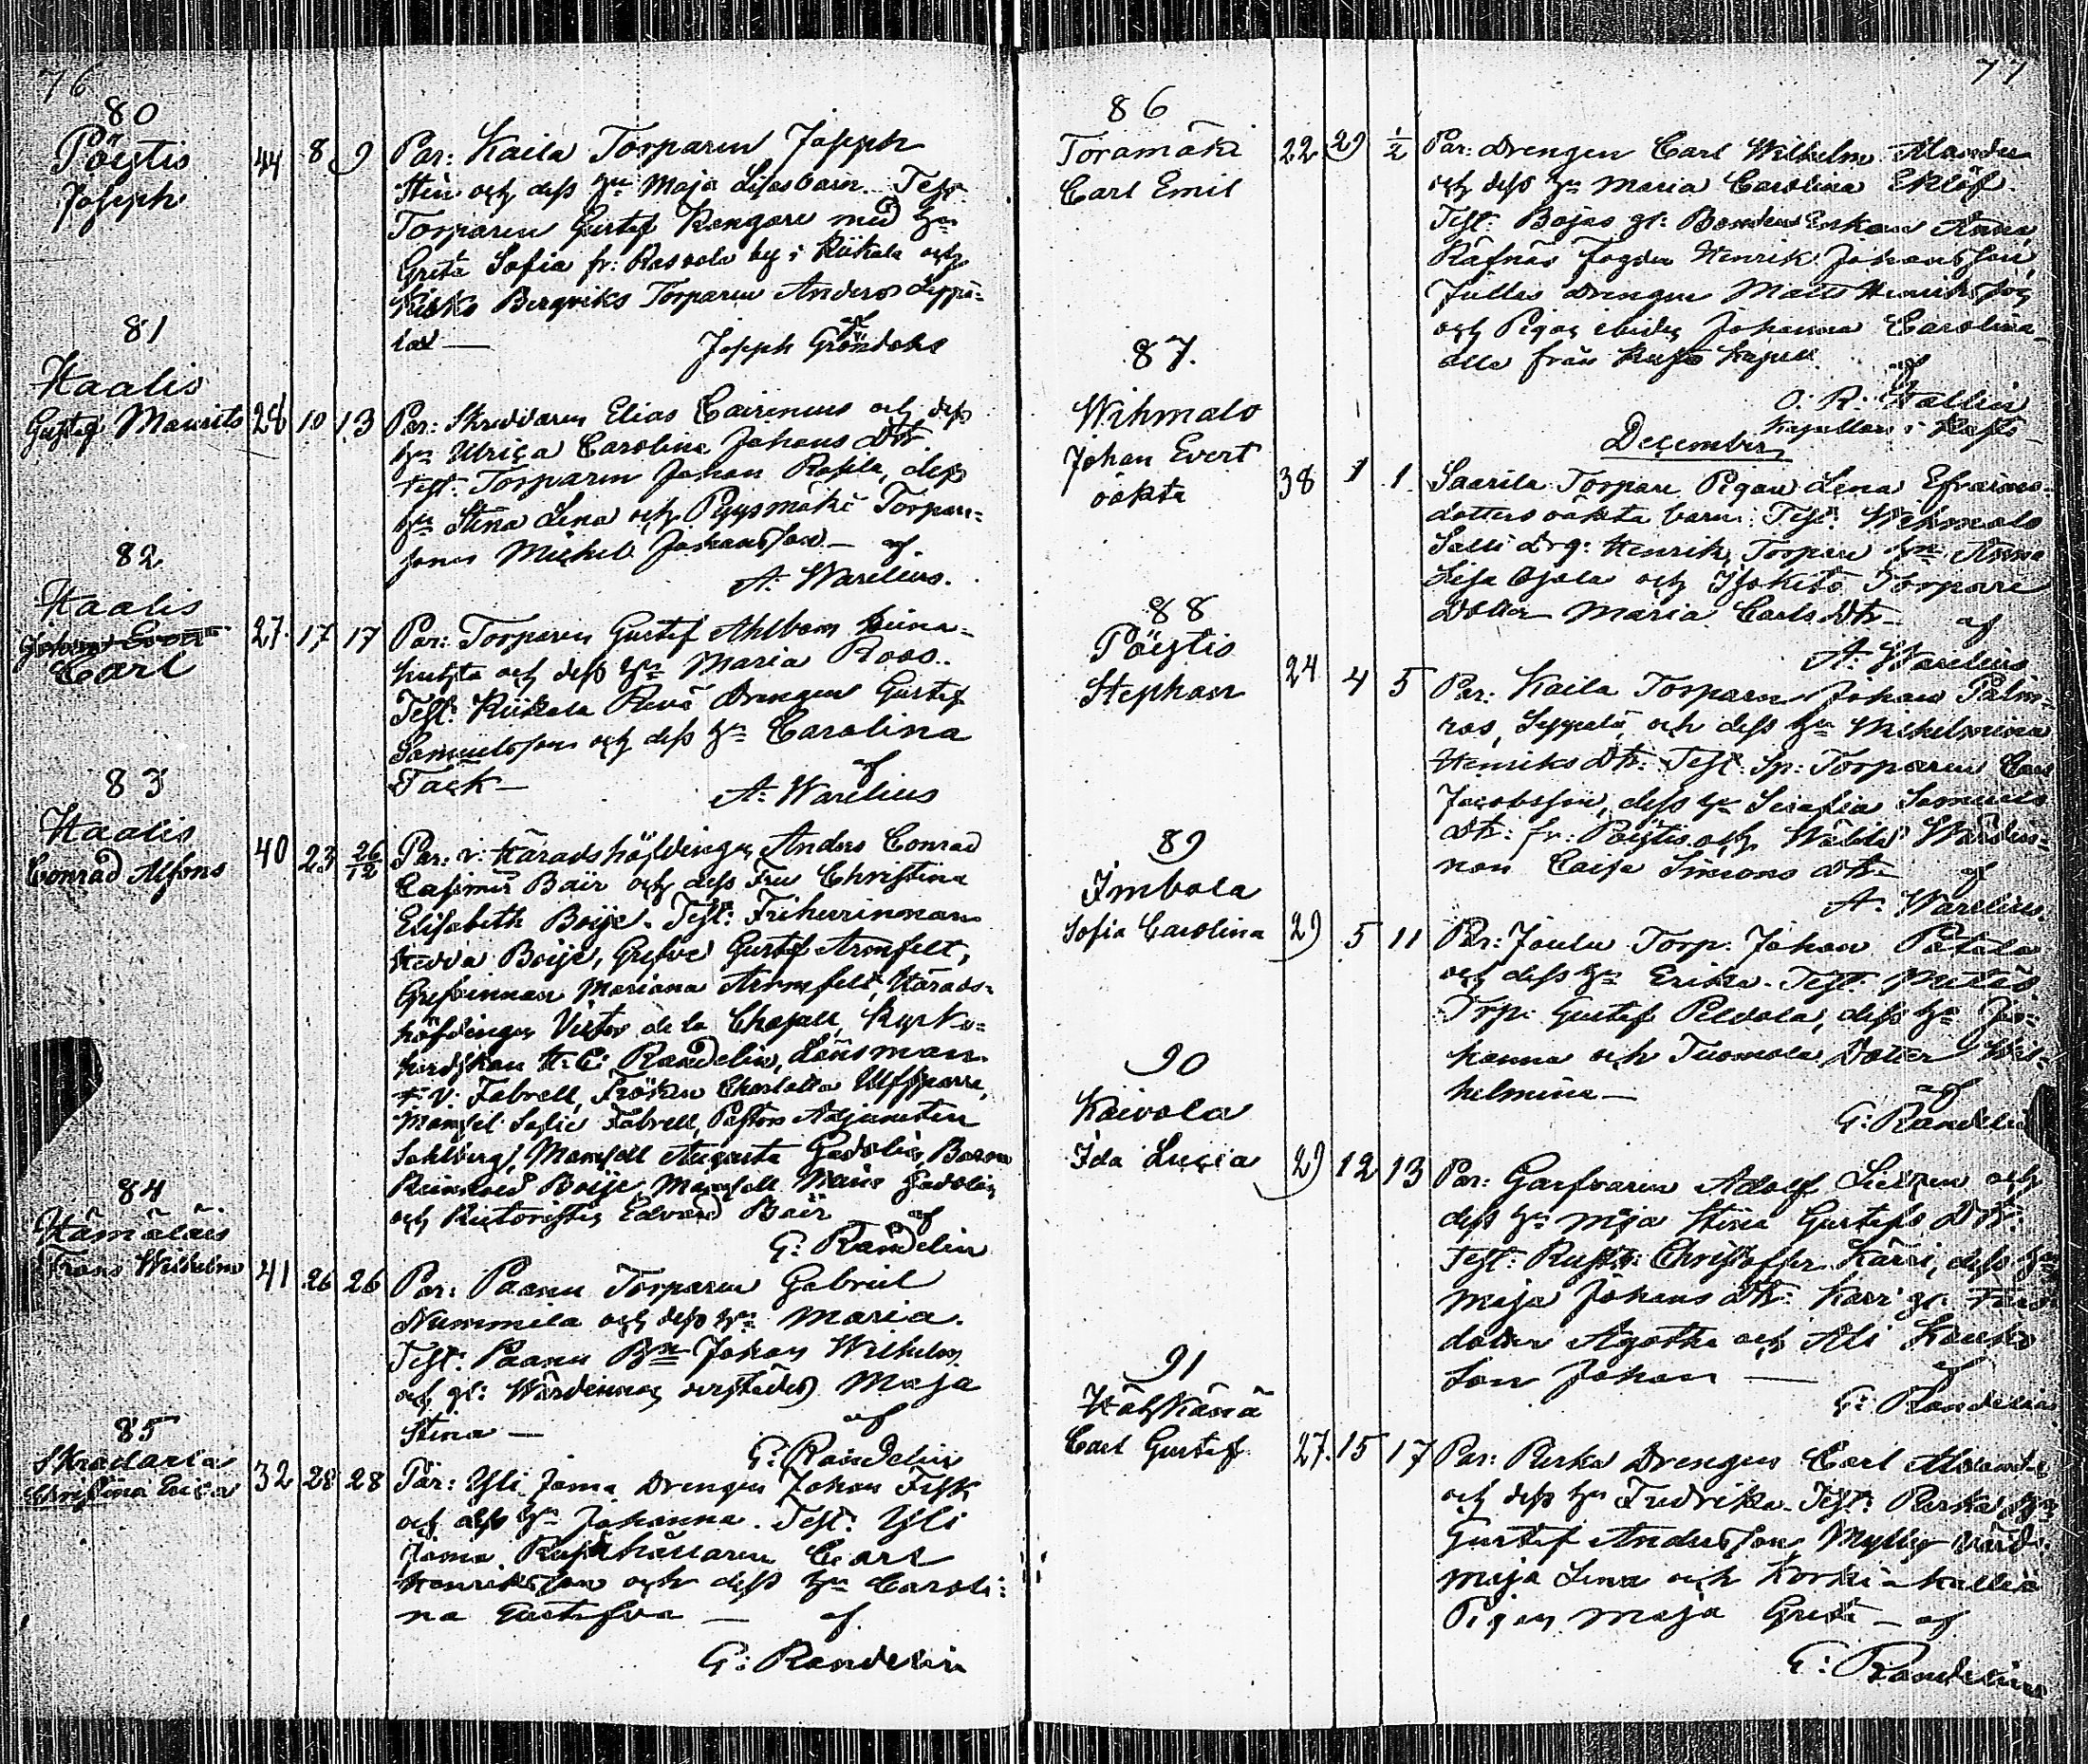 76
80
Pöytis
Joseph
44 8 9
Par: Kaila Torparen Joseph
och dess hu Maja Lisas barn. Test:
Torparen Gustaf Kangare med hu
Greta Sofia fr: by i Riikala och
Kisko Bergviks Torparen Anders
Joseph Gröndahl
81
Haalis
Gustaf Maurits
28 10 13
Par: Skreddaren Elias Cairenius och dess
hu Ulrica Carolina Johans Dtr
Test: Torparen Johan Rosila, dess
hu Stina Lena och Pyysmäki Torpare=
sonen Michel Johansson — af.
A: Warelius.
82
Haalis
Carl
27. 17 17
Par: Torparen Gustaf Ahlbom
och dess hu Maria Roos.
Test: Riikala Drengen Gustaf
Samuelsson och dess hu Carolina
Tack —
af
A: Warelius
83
Haalis
Conrad Alfons
40 23 26/12
Par: v: Häradshöfdingen Anders Conrad
Casimir Bäir och dess Fru Christina
Elisabeth Boije. Test: Friherrinnan
Hedda Boije, Grefve Gustaf Armfelt,
Grefvinnan Mariana Armfelt, Härads=
höfdingen Victor de la Chapelle, Kyrko=
herdskan H: C: Randelin, Länsman
F: V: Fabrell, Fröken Charlotta Ulfsparre,
Mamsell Sofie Fabrell, Pastors Adjuncten
Sahlberg, Mamsell Augusta Gadolin, Baron
Reinhold Boije, Mamsell Marie Gadolin
och Edvard Bäir
af
G: Randelin
84
Hämäläis
Frans Wilhelm
41 26 26
Par: Paanu Torparen Gabriel
Nummila och dess hu Maria.
Test: Paanu Bn Johan Wilhelm
och gl: Wärdinnan Maja
Stina —
af
G: Randelin
85
Skradarla
Christina Erica
32 28 28
Par: Yli Jama Drengen Johan Fisk
och dess hu Johanna. Test: Yli
Jama Rusthållaren Carl
Henriksson och dess hu Caroli:
na Gustafva — af.
G: Randelin
77
86
Toramäki
Carl Emil
22 29 1/2
Par: Drengen Carl Wilhelm
och dess hu Maria Carolina Eklöf.
Test: Bojas gl: Bonden Enkan Anna,
Räfnäs Fogden Henrik Johansson,
Jullas Drengen Matts Henriksson
och Pigan ibidem Johanna Carolina
alla från Kapell.
af
O: R: Hallin
Kapellan i
December
87.
Wihmalo
Johan Evert
oäkta
38 1 1.
Saarila Torpare Pigan Lena Efraims=
dotters oäkta barn: Test: Wihmalo
Salli Drg: Henrik, Torpare hn Anna
Lisa Ojala och Torpare
Dotter Maria Carls Dtr — af
A: Warelius
88
Pöytis
Stephan
24 4 5
Par: Kaila Torparen Johan Palm=
ros, Seppälä, och dess hu Wilhelmina
Henriks Dtr: Test: Sp: Torparen Carl
Jacobsson, dess hu Serafia Samuels
Dtr: fr: Pöytis och Wärdin=
nan Caisa Simons Dtr —
af
A: Warelius.
89
Imbola
Sofia Carolina
29 5 11
Par: Joulu Torp: Johan
och dess hu Erika. Test:
Trp: Gustaf Peldola, dess hu Jo=
hanna och Tuomola Dotter Wil=
helmina —
af
G: Randelin
90
Koivola
Ida Lucia
29 12 13
Par: Garfvaren Adolf och
dess hu Maja Stina Gustafs Dtr:
Test: Rusth: Christoffer Kärri, dess hu
Maja Johans Dtr: Karri gl:
dotter Agatha och Ali
Son Johan —
af
G: Randelin
91
Kähkänä
Carl Gustaf
27. 15 17
Par: Perka Drengen Carl
och dess hu Fredrika. Test: Perka
Gustaf Andersson, Mylly Värd:
Maja Lena och Korkia-kallio
Pigan Maja Greta — af
G: Randelin